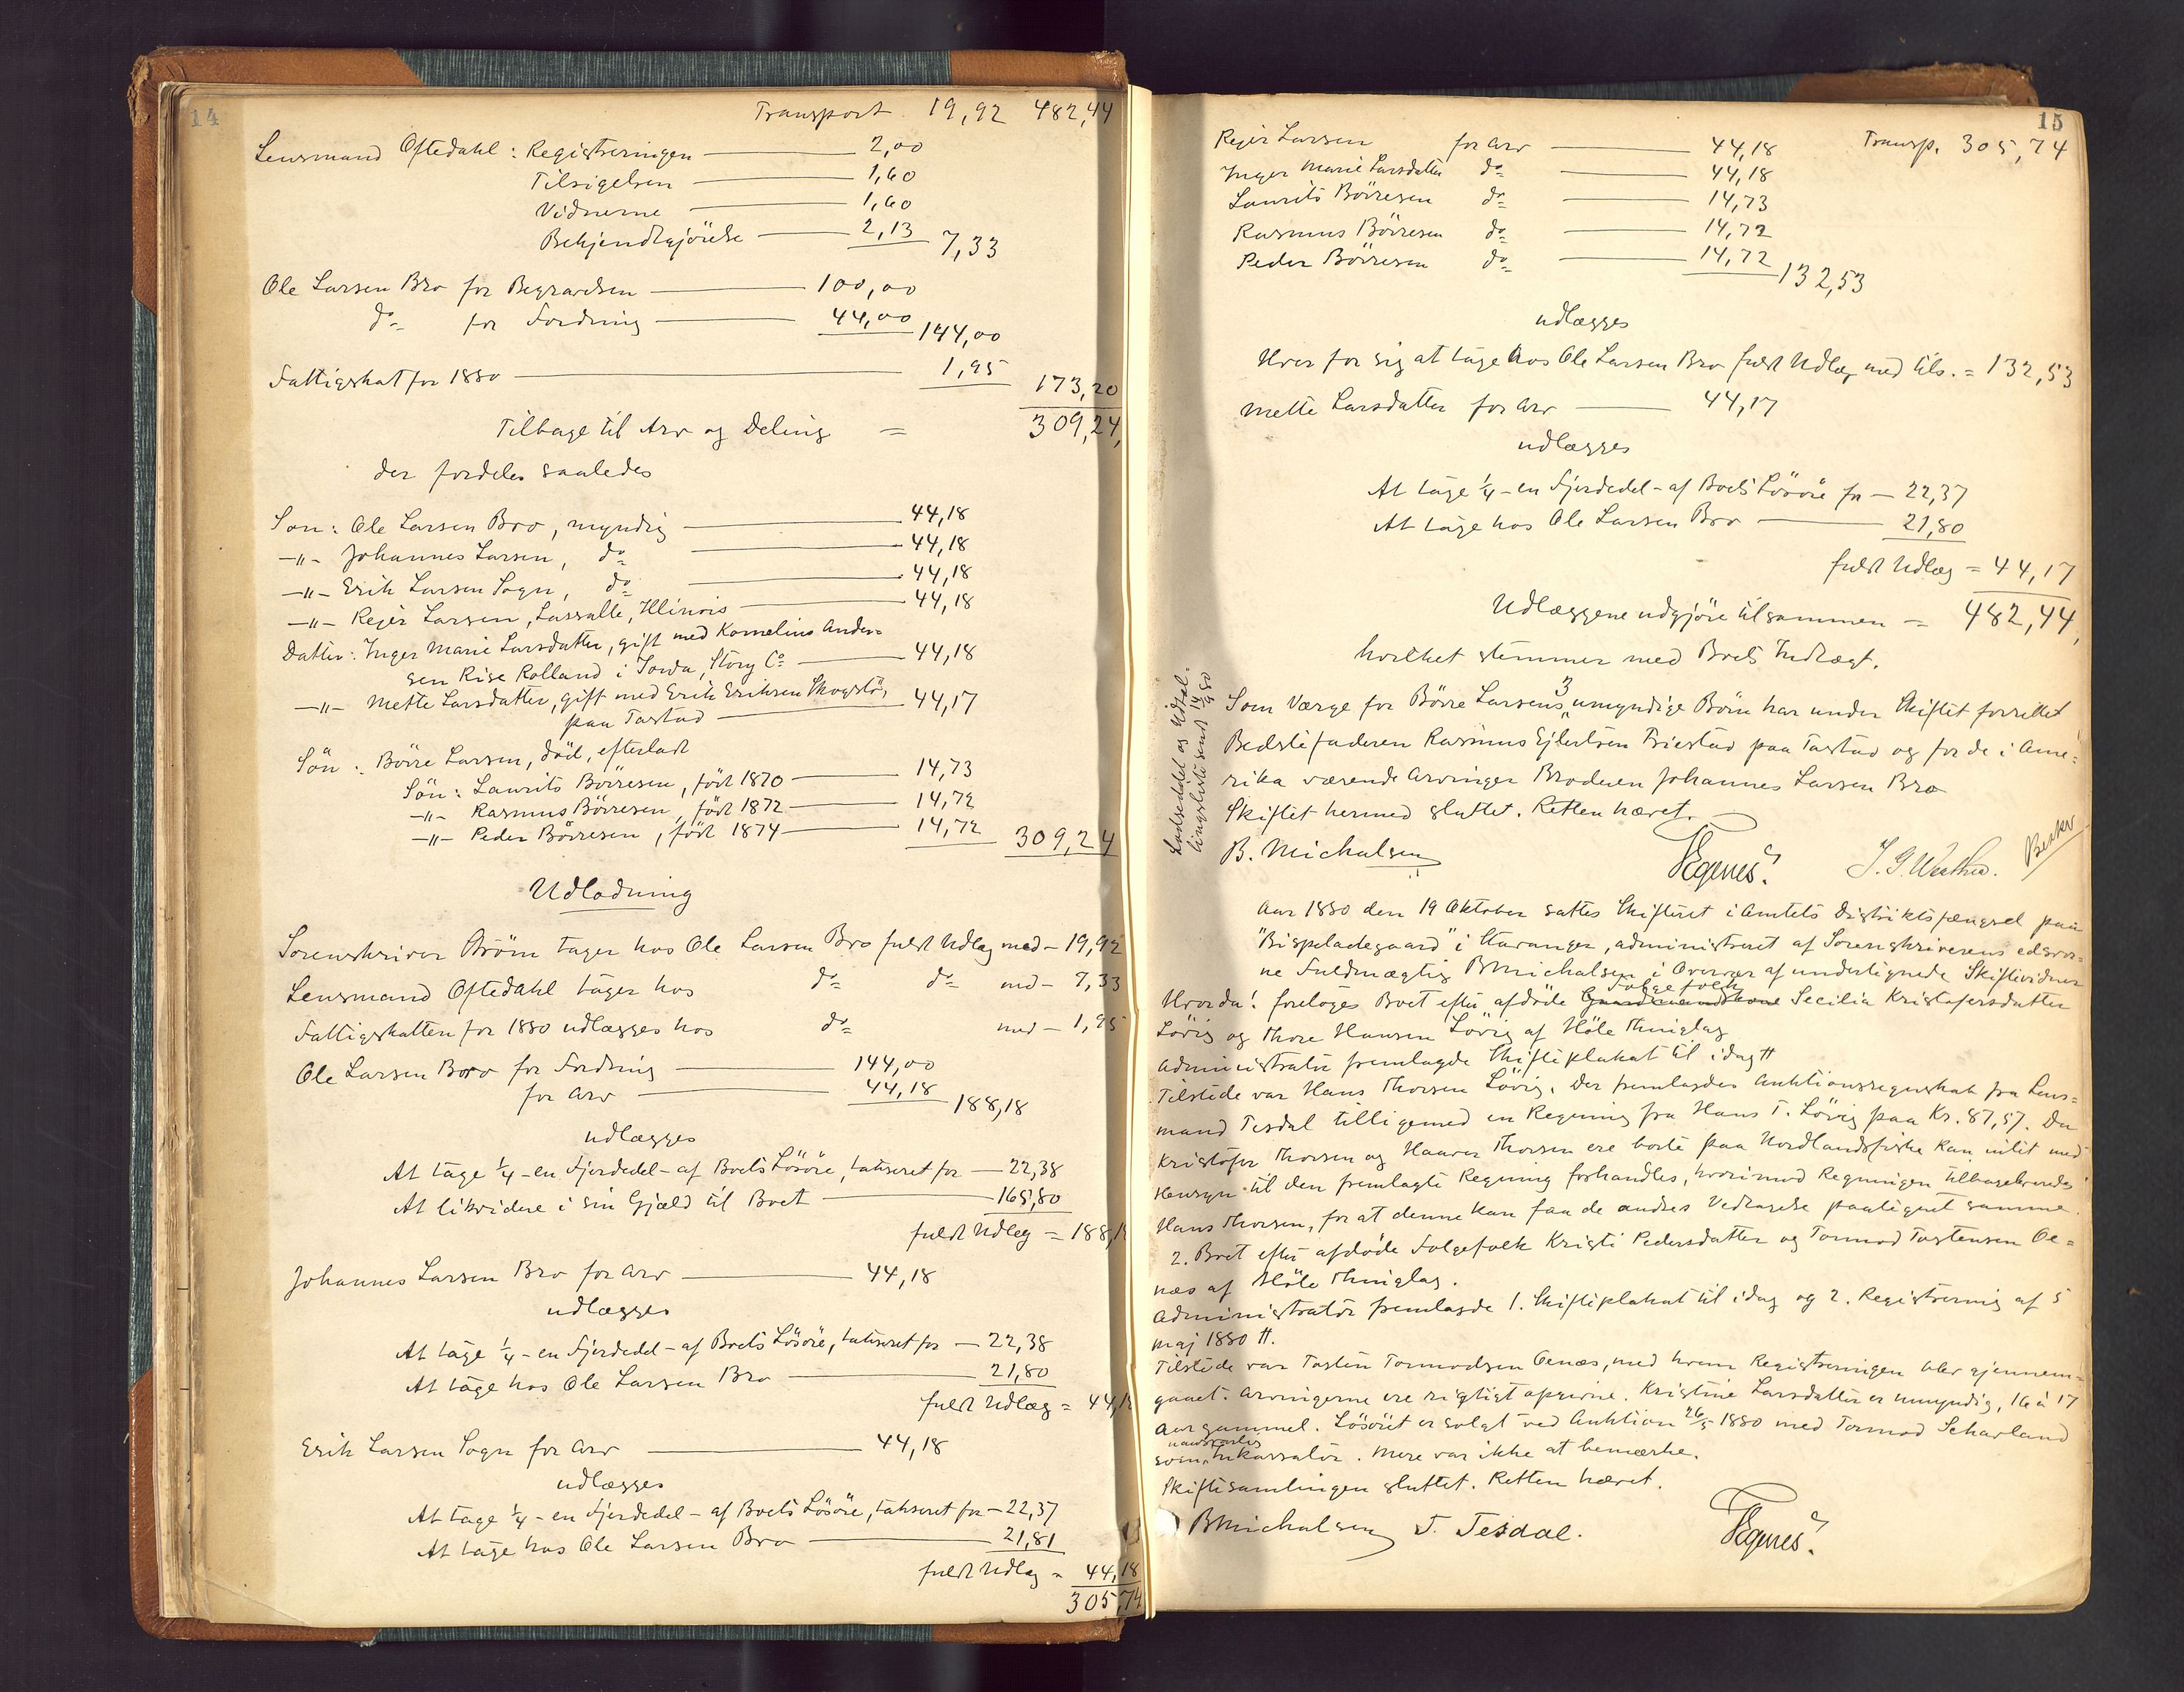 14
Transport 19,92 482,44
Lensmand Oftedahl: Registreringen — 2,00
Tilsigelsen — 1,60
Vidnerne — 1,60
Bekjendtgjörelse — 2,13 7,33
Ole Larsen Bro for Begravelsen — 100,00
do for Fordring — 44,00 144,00
Fattigskat for 1880 — 1,95
173,20
Tilbage til Arv og Deling = 309,24
der fordeles saaledes
Søn: Ole Larsen Bro, myndig — 44,18
—"— Johannes Larsen, do — 44,18
—"— Erik Larsen Sogn, do — 44,18
—"— Rejer Larsen, Lassalle, Illinois — 44,18
Datter: Inger Marie Larsdatter, gift med Kornelius Ander=
sen Rise Rolland i Iowa, Story Co — 44,18
—"— Mette Larsdatter, gift med Erik Eriksen Skogstö,
paa Tastad — 44,17
Sön: Börre Larsen, död, efterladt
Sön: Laurits Börresen, född 1870 — 14,73
—"— Rasmus Börresen, född 1872 — 14,72
—"— Peder Börresen, född 1874 — 14,72 309,24
Udlodning
Sorenskriver Ström tager hos Ole Larsen Bro fuldt Udlæg med — 19,92
Lensmand Oftedahl tager hos do do med — 7,33
Fattigskatten for 1880 udlægges hos do med — 1,95
Ole Larsen Bro for Fordring — 144,00
for Arv — 44,18 188,18
udlægges
At tage 1/4 - en Fjerdedel - af Boets Lösöre, takseret for — 22,38
At likvidere i sin Gjæld til Boet — 165,80
fuldt Udlæg = 188,18
Johannes Larsen Bro for Arv — 44,18
udlægges
At tage 1/4 - en Fjerdedel - af Boets Lösöre, takseret for — 22,38
At tage hos Ole Larsen Bro — 21,80
fuldt Udlæg = 44,18
Erik Larsen Sogn for Arv — 44,18
udlægges
At tage 1/4 - en Fjerdedel - af Boets Lösöre, takseret for — 22,37
At tage hos Ole Larsen Bro — 21,81
fuldt Udlæg = 44,18
305,74
15
Transp. 305,74
Rejer Larsen for Arv — 44,18
Inger Marie Larsdatter do — 44,18
Laurits Börresen do — 14,73
Rasmus Börresen do — 14,72
Peder Börresen do — 14,72 132,53
udlægges
Hver for sig at tage hos Ole Larsen Bro fuldt Udlæg med tils. = 132,53
Mette Larsdatter for Arv — 44,17
udlægges
At tage 1/4 - en Fjerdedel - af Boets Lösöre for — 22,37
At tage hos Ole Larsen Bro — 21,80
fuldt Udlæg = 44,17
Udlæggene udgjöre tilsammen = 482,44,
hvilket stemmer med Boets Indtægt.
Lodseddel og Udtal.
Som Værge for Börre Larsens 3 umyndige Börn har under Skiftet forrettet
Bedstefaderen Rasmus Ejlertsen Friestad paa Tastad og for de i Ame=
rika værende Arvinger Broderen Johannes Larsen Bro
Skiftet hermed sluttet. Retten hævet.
B. Michalsen
Aar 1880 den 19 Oktober sattes Skifteret i Amtets Distriktsfængsel paa
"Bispeladegaard" i Stavanger, administreret af Sorenskriverens edsvor=
ne Fuldmægtig B Michalsen i Overvær af undertegnede Skiftevidner
Hvorda: foretoges Boet efter afdöde Gaardmandskone Folgefolk Secilia Kristofersdatter
Lövig og Thore Hansen Lövig af Höle Thinglag
Administrator fremlagde Skifteplakat til idag #
Tilstede var Hans Thorsen Lövig. Der fremlagdes Auktionsregnskab fra Lens=
mand Tesdal tilligemed en Regning fra Hans T. Lövig paa Kr. 87,57. Da
Kristofer Thorsen og Haaver Thorsen ere borte paa Nordlandsfiske kan intet med
Hensyn til den fremlagte Regning forhandles, hvorimod Regningen tilbageleveredes
Hans Thorsen, for at denne kan faa de andres Vedtagelse paategnet samme.
2. Boet efter afdöde Folgefolk Kristi Pedersdatter og Tormod Tostensen Oe=
næs af Höle Thinglag.
Administrator fremlagde 1. Skifteplakat til idag og 2. Registrering af 5
Maj 1880 #.
Tilstede var Tosten Tormodsen Oenæs, med hvem Registreringen blev gjennem=
gaaet. Arvingerne ere rigtigt opgivne. Kristine Larsdatter er umyndig, 16 à 17
Aar gammel. Lösöret er solgt ved Auktion 26/5 1880 med Tormod Scharland
som Inkassator. Mere var ikke at bemærke.
Skiftesamlingen sluttet. Retten hævet.
B Michalsen T. Tesdal.